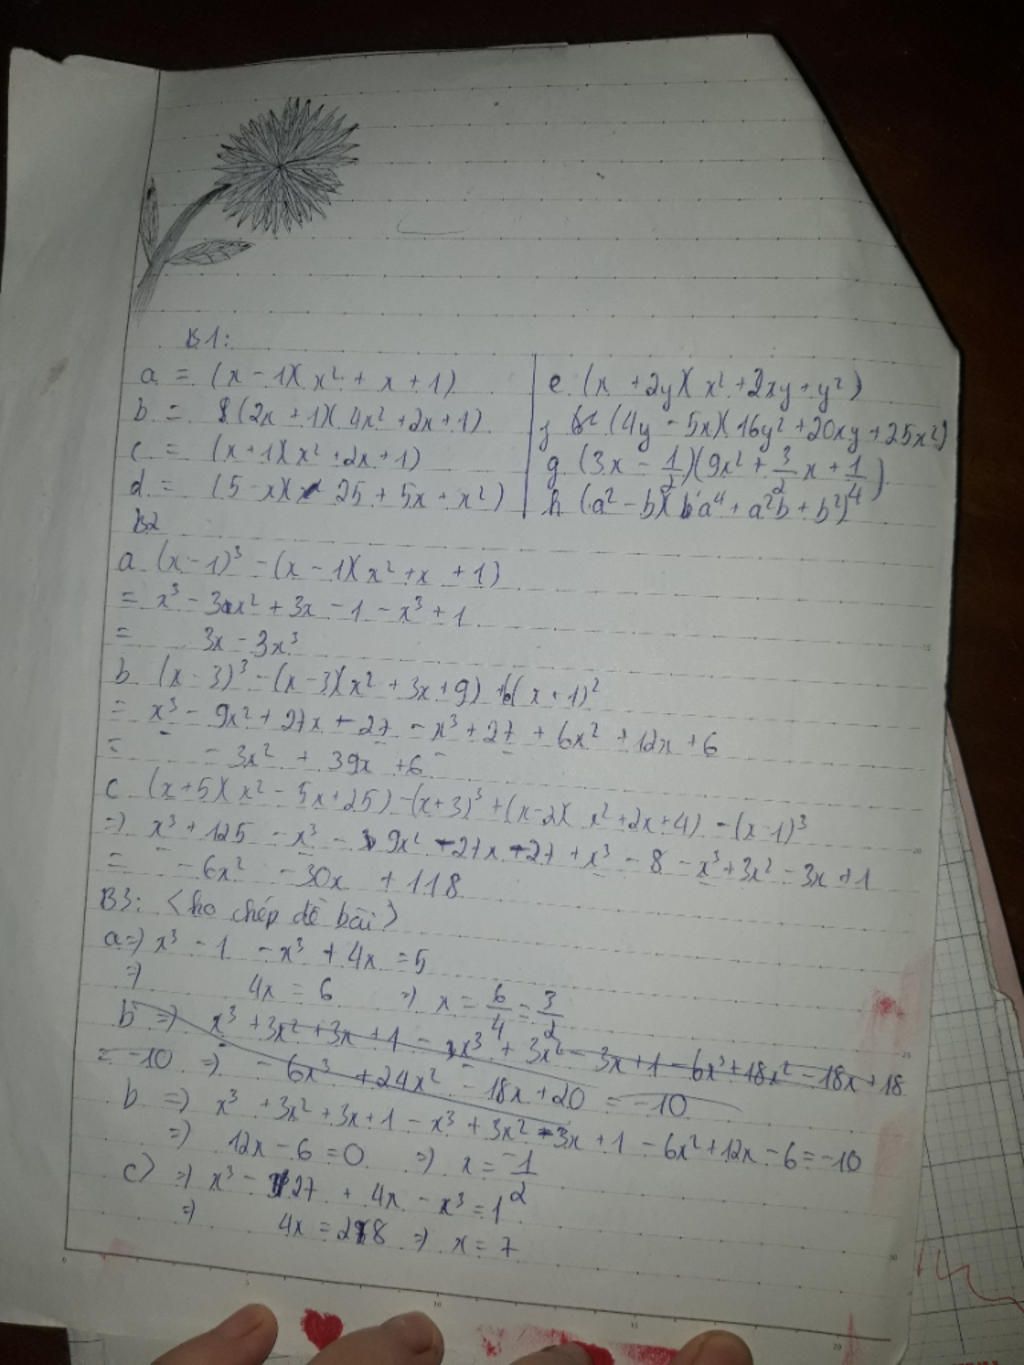 B1:
a = (x - 1)(x² + x + 1)
b = (2x + 1)(4x² + 2x + 1)
c = (x + 1)(x² + 2x + 1)
d = (5 - x)(25 + 5x + x²)
e (x + 2y)(x² + 2xy + y²)
f (4y - 5x)(16y² + 20xy + 25x²)
g (3x - 1/2)(9x² + 3/2 x + 1/4)
h (a² - b)(a⁴ + a²b + b²)
B2
a (x - 1)³ - (x - 1)(x² + x + 1)
= x³ - 3x² + 3x - 1 - x³ + 1
= 3x - 3x³
b (x - 3)³ - (x - 3)(x² + 3x + 9) + 6(x + 1)²
= x³ - 9x² + 27x - 27 - x³ + 27 + 6x² + 12x + 6
= - 3x² + 39x + 6
c (x + 5)(x² - 5x + 25) - (x + 3)³ + (x - 2)(x² + 2x + 4) - (x - 1)³
=> x³ + 125 - x³ - 9x² - 27x - 27 + x³ - 8 - x³ + 3x² - 3x + 1
= - 6x² - 30x + 118
B3: <ko chép đề bài>
a => x³ - 1 - x³ + 4x = 5
=> 4x = 6 => x = 6/4 = 3/2
b => x³ + 3x² + 3x + 1 - x³ + 3x² - 3x + 1 - 6x³ + 18x² - 18x + 18
= -10 => - 6x³ + 24x² - 18x + 20 = -10
b => x³ + 3x² + 3x + 1 - x³ + 3x² - 3x + 1 - 6x² + 12x - 6 = -10
=> 12x - 6 = 0 => x = -1/2
c) => x³ - 27 + 4x - x³ = 1
=> 4x = 28 => x = 7